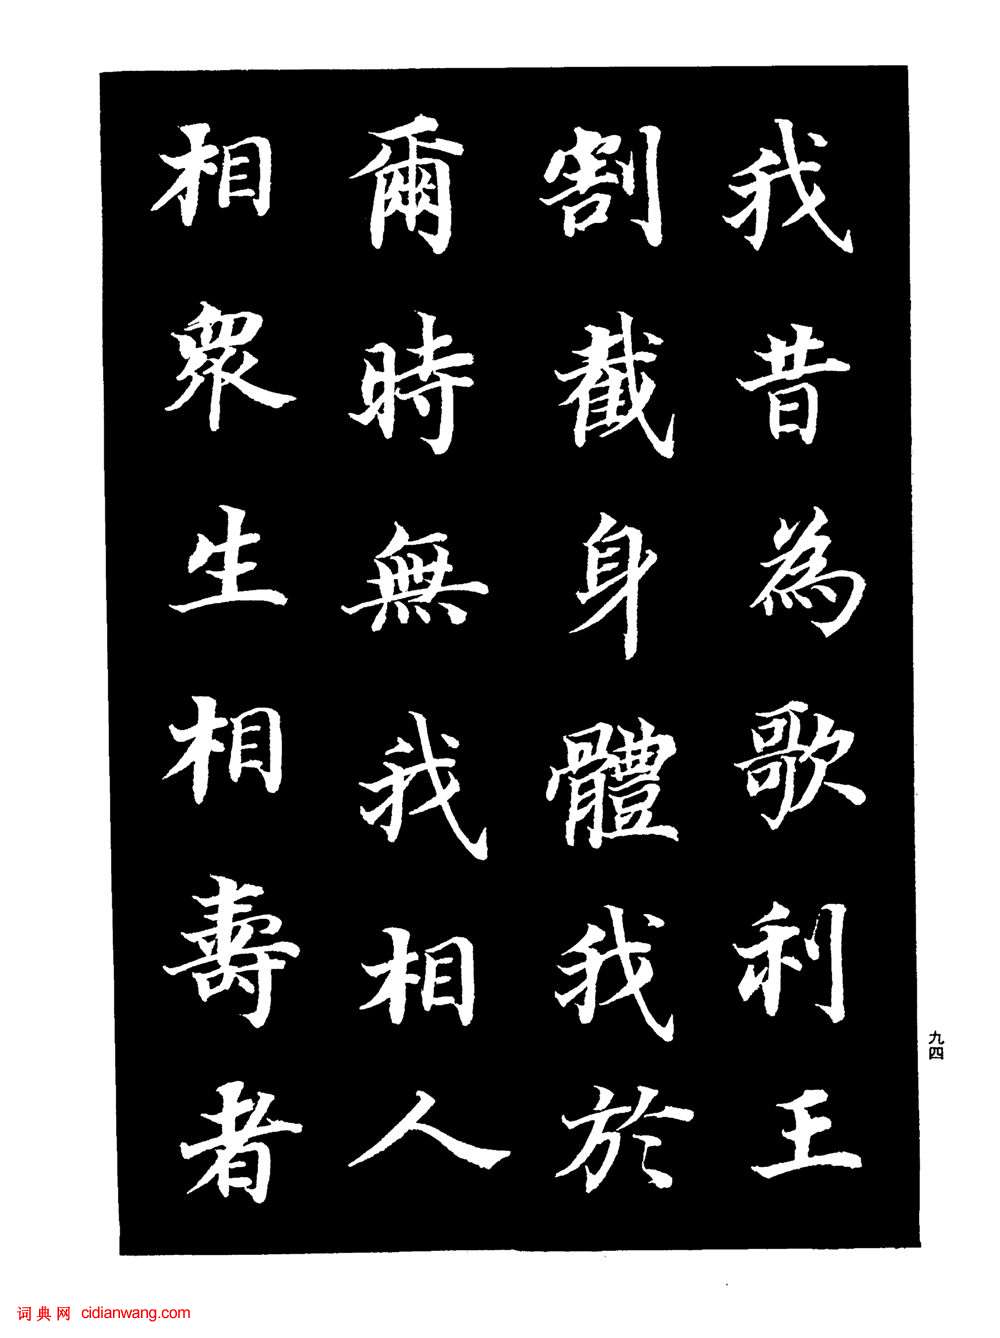 我昔為歌利王
割截身體我於
爾時無我相人
相眾生相壽者
九四
词典网 cidianwang.com